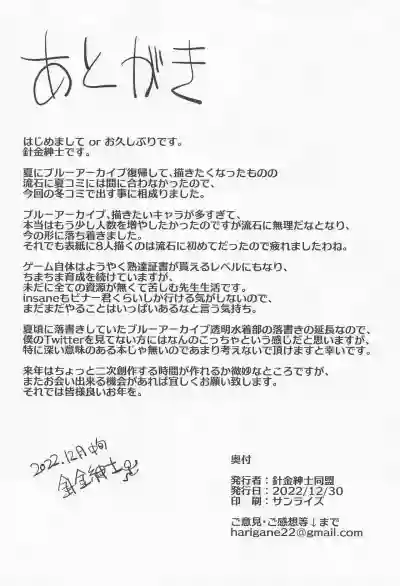 あとがき
はじめまして or お久しぶりです。
針金紳士です。
夏にブルーアーカイブ復帰して、描きたくなったものの
流石に夏コミには間に合わなかったので、
今回の冬コミで出す事に相成りました。
ブルーアーカイブ、描きたいキャラが多すぎて、
本当はもう少し人数を増やしたかったのですが流石に無理だなとなり、
今の形に落ち着きました。
それでも表紙に8人描くのは流石に初めてだったので疲れましたわね。
ゲーム自体はようやく熟達証書が貰えるレベルにもなり、
ちまちま育成を続けていますが、
未だに全ての資源が無くて苦しむ先生生活です。
insaneもビナー君くらいしか行ける気がしないので、
まだまだやることはいっぱいあるなと言う気持ち。
夏頃に落書きしていたブルーアーカイブ透明水着部の落書きの延長なので、
僕のTwitterを見てない方にはなんのこっちゃという感じだと思いますが、
特に深い意味のある本じゃ無いのであまり考えないで頂けますと幸いです。
来年はちょっと二次創作する時間が作れるか微妙なところですが、
またお会い出来る機会があれば宜しくお願い致します。
それでは皆様良いお年を。
2022.12月中旬
針金紳士
奥付
発行者：針金紳士同盟
発行日：2022/12/30
印 刷：サンライズ
ご意見・ご感想等↓まで
harigane22@gmail.com